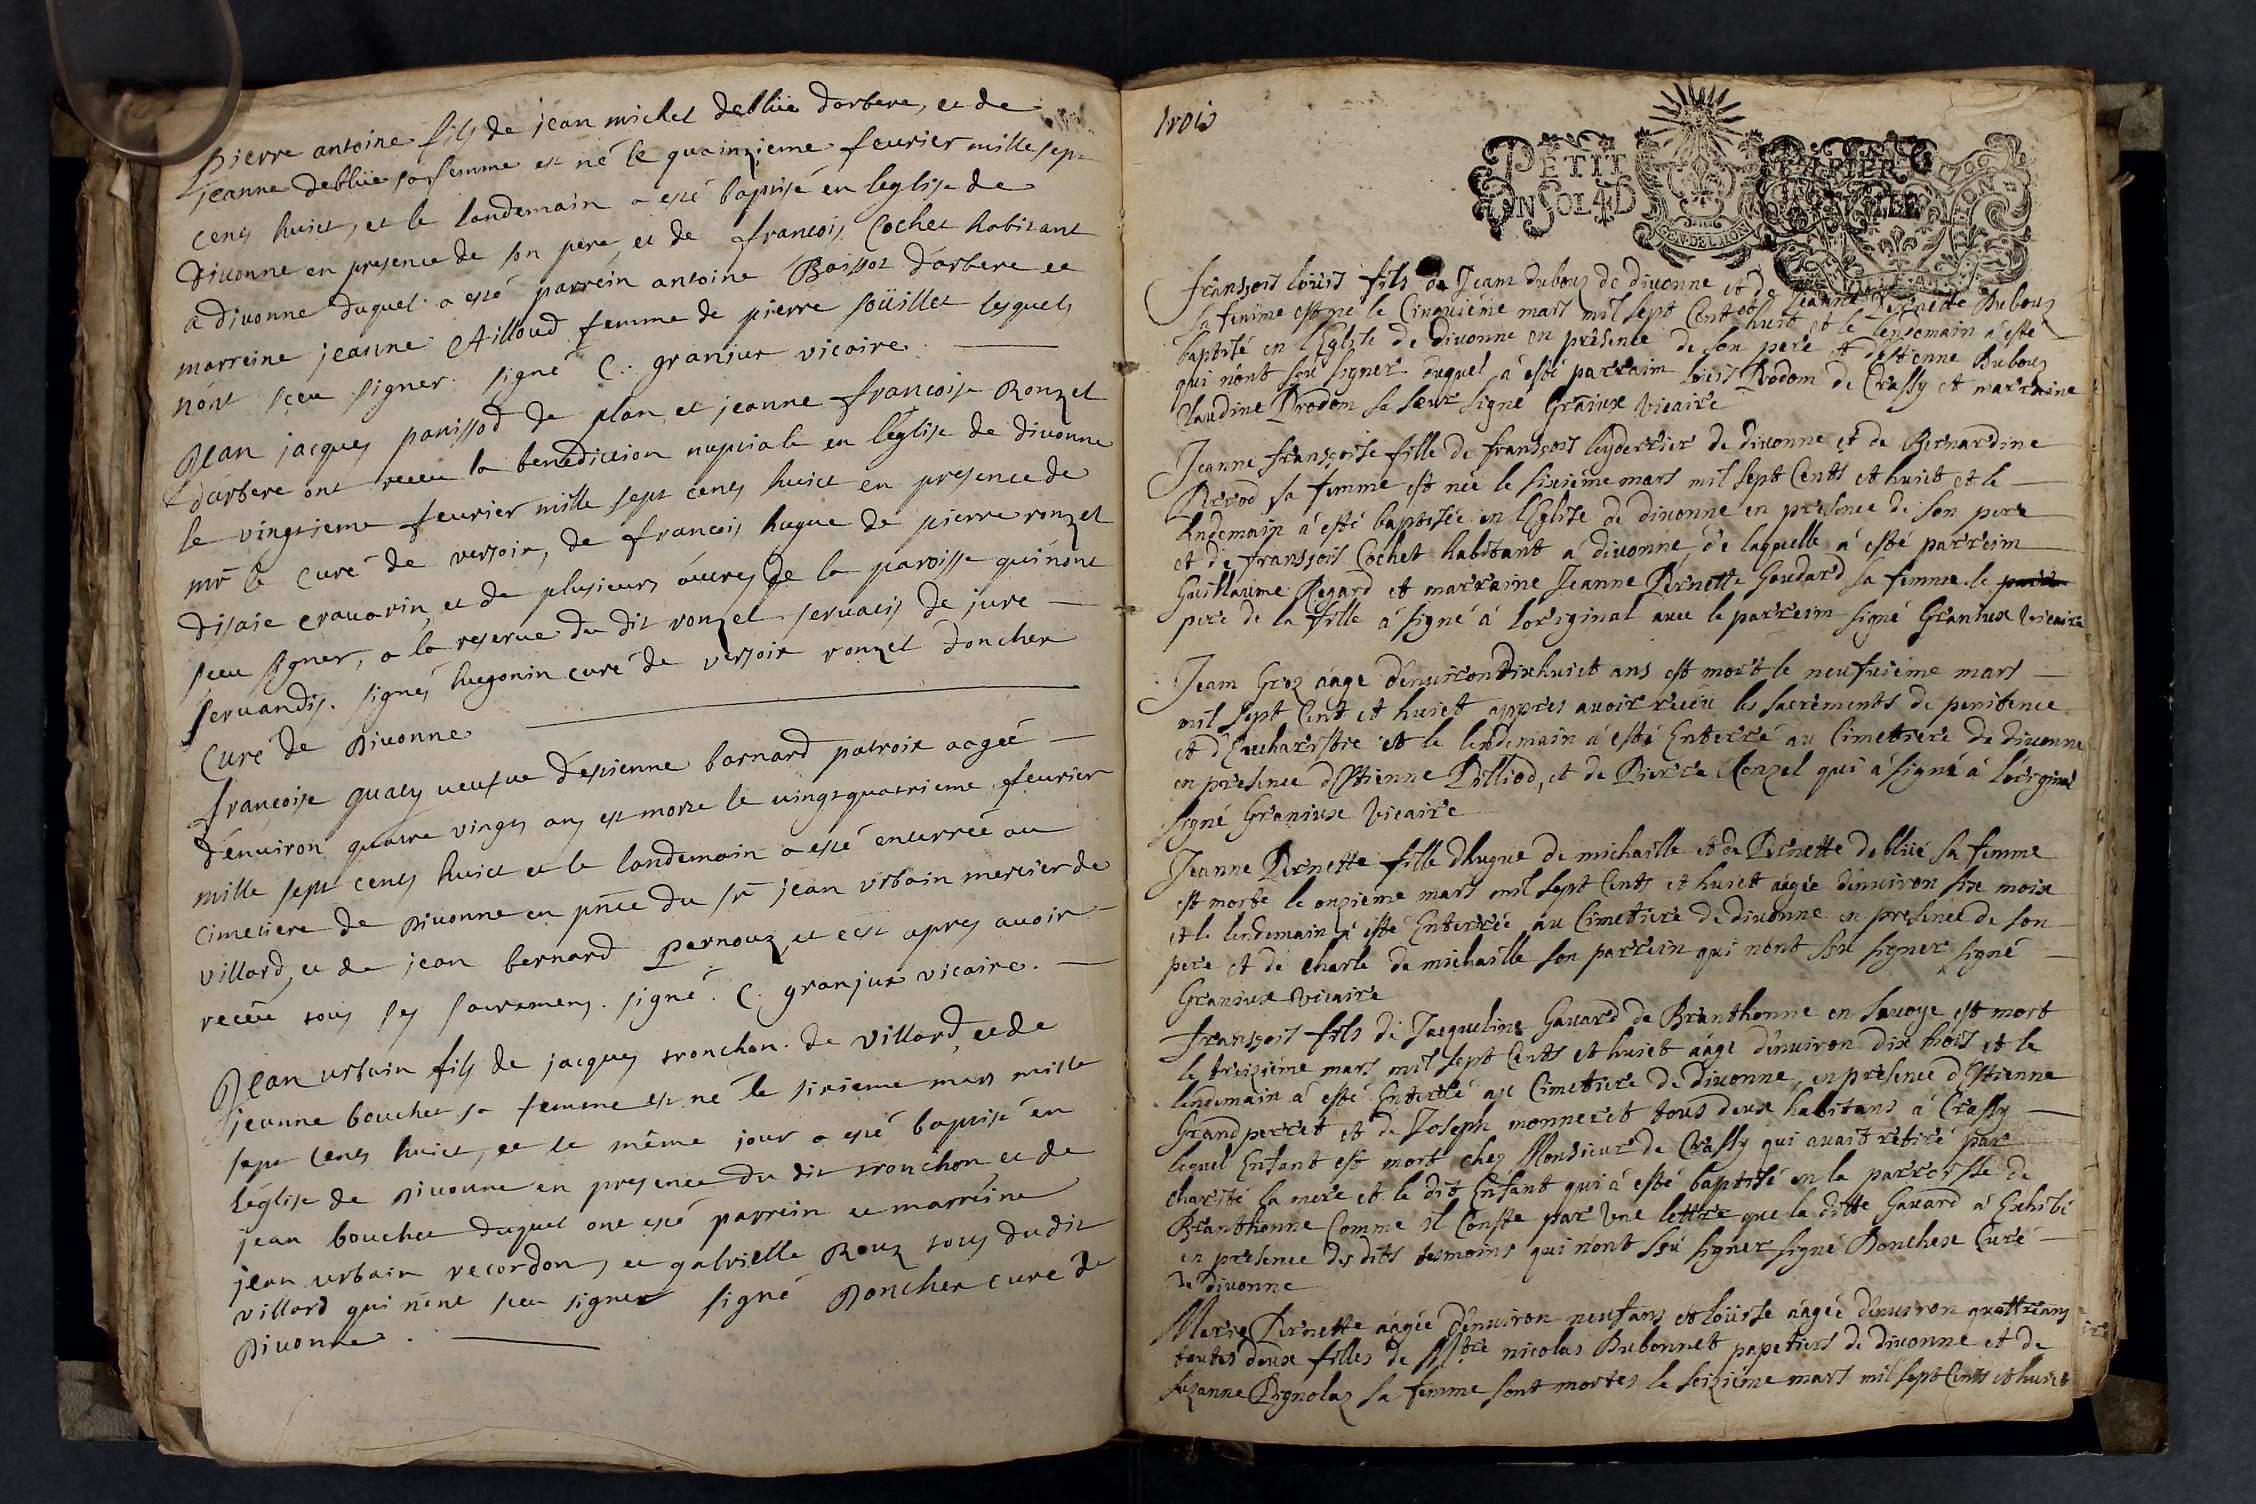 Pierre antoine fils de jean michel deblüe darbere, et de
jeanne deblüe sa femme est né le quainzieme feurier mille sept
cents huict, et le landemain a esté baptisé en leglise de
diuonne en presence de son pere, et de francois Cochet habitant
a diuonne duquel a esté parrein antoine Boissot d'arbere et
marreine jeanne Ailloud femme de pierre soüillet lesquels
n'ont sceu signer. signé C. granjux vicaire.
Jean jacques panissod de plan et jeanne francoise Ronzel
darbere ont receu la benediction nuptiale en l'église de diuonne
le vingtieme feurier mille sept cents huict en presence de
mr le Curé de versoix, de francois hugue de pierre ronzel
disaie crauarin, et de plusieurs autres de la paroisse qui n'ont
sceu signer, a la reserue du dit ronzel seruatis de jure
seruandis. signés huegonin curé de versoix ronzel Doncher
Curé de Diuonne
francoise qualy ueufue d'estienne barnard patroix aagée
d'énuiron quatre vingts ans est morte le uingtquatrieme feurier
mille sept cents huict et le landemain a esté enterrée au
cimetiere de Diuonne en pnce du sr jean urbain mercier de
villard, et de jean bernard pernouz et c'est apres auoir
receu tous ses sacremens. signé. C. granjux vicaire.
Jean urbain fils de jacques tronchon de villard, et de
jeanne bouchet sa femme est né le sixieme mars mille
sept cents huict, et le même jour a esté baptisé en
l'église de Diuonne en presence du dit tronchon et de
jean bouchet duquel ont esté parrein et marréine
jean urbain recordon, et gabrielle Rouz tous dudit
villard qui n'ont sceu signer signé Doncher curé de
Diuonne.
trois
PETIT PAPIER
UN SOL 4 D
GEN DE LYON
fransçois loüis fils de Jean dubouz de diuonne et de Jeanne Pernette Dubouz
sa femme est né le Cinquiéme mars mil sept Cent et huit et le lendemain a esté
baptisé en l'Eglise de diuonne en présence de son pere et d'Estienne Dubouz
qui n'ont sçu signer duquel à esté parraim loüis Prodom de Crassy et marraine
Claudine Prodom sa sœur signé Graniux vicaire
Jeanne françoise fille de fransçois leyderrier de diuonne et de Bernardine
Perrod sa femme est née le sixiéme mars mil sept Cents et huict et le
lendemain à esté baptisée en l'Eglise de diuonne en présence de son pere
et de fransçois Cochet habitant á diuonne, de laquelle à esté parreim
Guillaume Regard et marraine Jeanne Pernette Goudard sa femme. le
pere de la fille à signé à l'original auec le parreim signé Graniux vicaire
Jeam Groz áagé d'enuiron dixhuict ans est mort le neufuiéme mars
mil sept Cent et huict appres auoir reçeu les sacréments de penitence
et d'Eucharistie et le lendemain à esté Enterré au Cimettiere de diuonne
en presence d'Estienne Pilliod, et de Pierre Ronzel qui à signé à l'original
signé Graniux Vicaire
Jeanne Pernette fille d'hugue de michaille et de Pernette deblüé sa femme
est morte le onzieme mars mil sept Cents et huict aagée d'enuiron six moix
et le lendemain à esté Enterrée au Cimetiere de diuonne en presence de son
pere et de Charle de michaille son parrein qui n'ont sçu signer signé
Graniux vicaire
fransçois fils de Jacqueline Gauard de Branthonne en Sauoye est mort
le treiziéme mars mil sept Cents et huict áagé d'enuiron dix mois et le
lendemain á esté Enterré au Cimetiere de diuonne, en présence d'Estienne
Grandperret et de Joseph monneret tous deux habitans à Crassy
lequel Enfant est mort chez Monsieur de Crassy qui auait retiré par
charité la mere et le dit Enfant qui à esté baptisé en la parroisse de
Branthonne Comme il Conste par vne lettre que la ditte Gauard á Exhibé
en présence des dits tesmoins qui n'ont sçu signer signé Doncher Curé
de diuonne
Marie Pernette áagée d'enuiron neuf ans et loüise áagée d'enuiron quattre ans
toutes deux filles de Mtre nicolas Dubonnet papetiers de diuonne et de
suzanne Pignolaz sa femme sont mortes le seiziéme mars mil sept Cents et huict